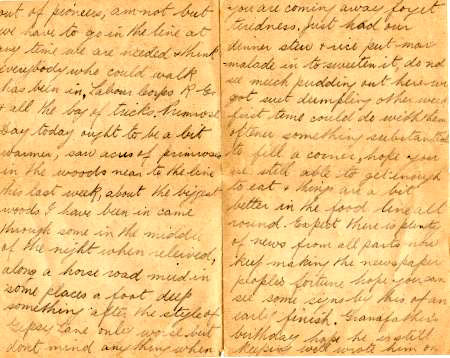 out of pioneers, am not but
we have to go in the line at
any time we are needed & think
everybody who could walk
has been in, Labour Corps R. E's
& all the bag of tricks. Primrose
Day today ought to be a bit
warmer, saw acres of primroses
in the woods near to the line
this last week, about the biggest
woods I have been in came
through some in the middle
of the night when relieved,
along a horse road mud in
some places a foot deep
something after the style of
Gipsy Lane only worse but
dont mind anything when
you are coming away forget
tiredness. Just had our
dinner stew & rice put mar
malade in to sweeten it, do not
see much pudding out here
got suet dumpling other week
first time could do with them
oftener something substantial
to fill a corner, hope you
are still able to get enough
to eat & things are a bit
better in the food line all
round. Expect there is plenty
of news from all parts now
keep making the newspaper
peoples fortune hope you can
see some signs by this of an
early finish. Grandfathers
birthday hope he is still
keeping well wrote them on